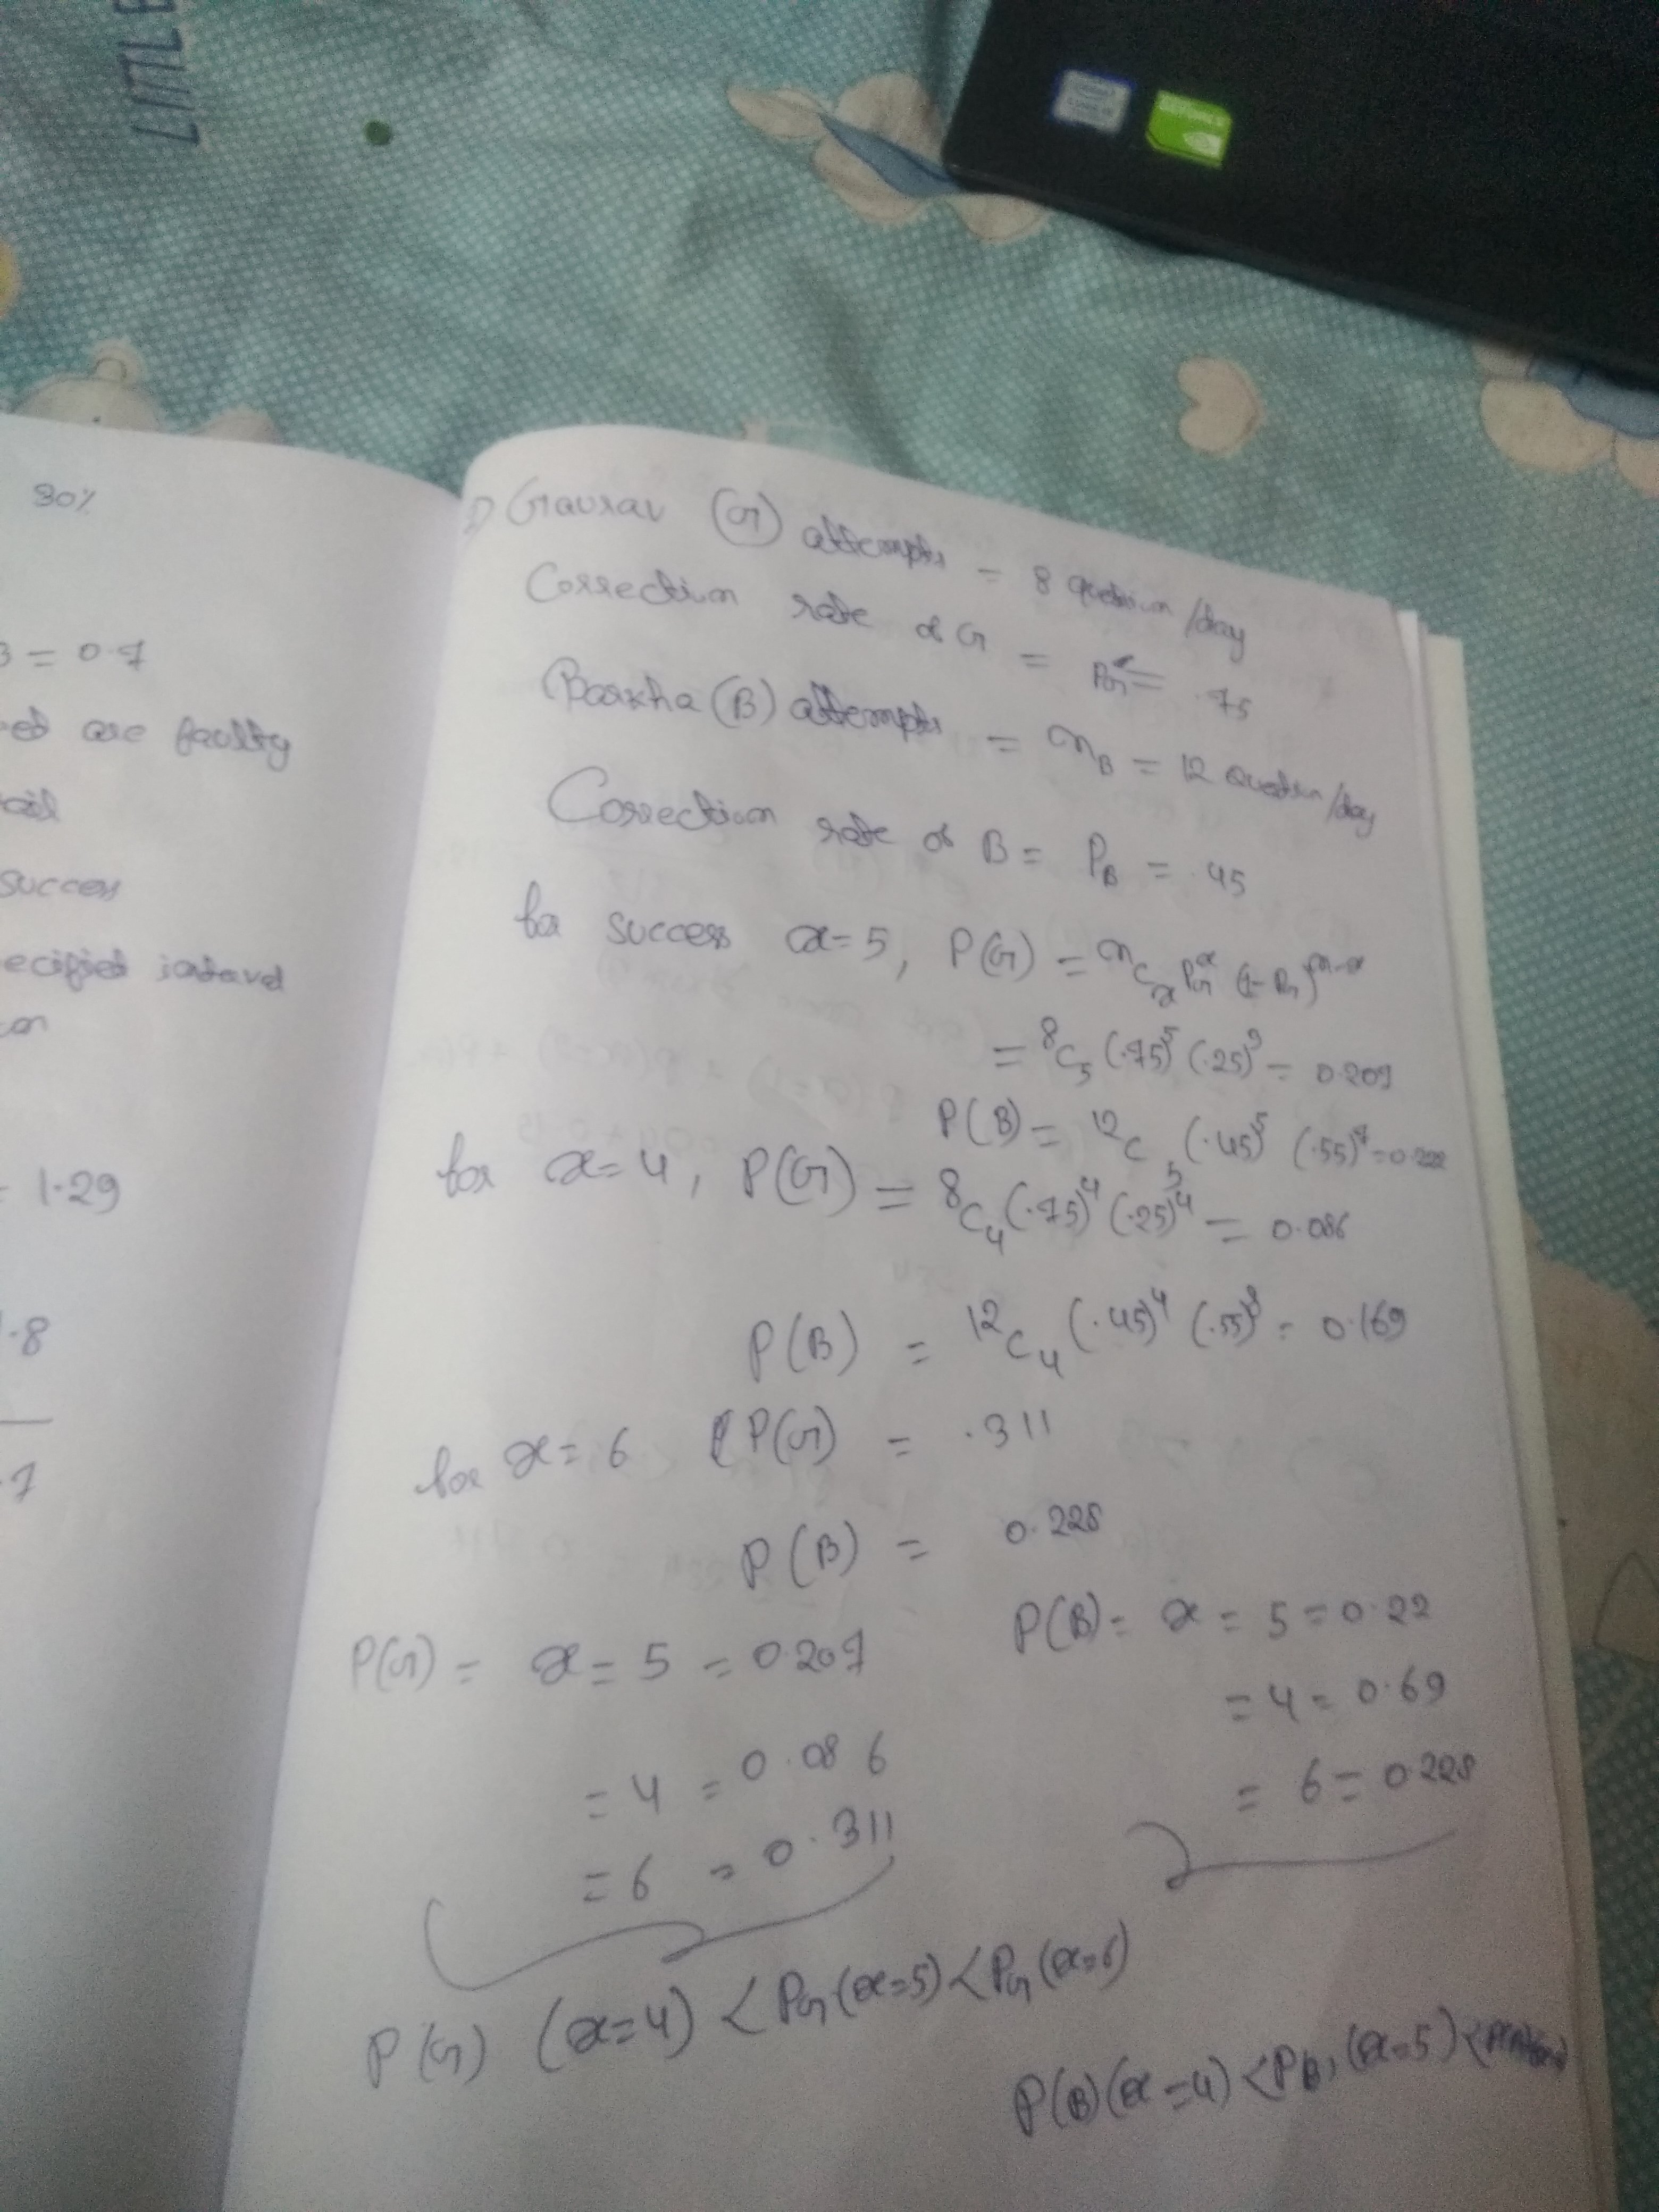 LITTLE
30%
3 = 0.7
ed are faulty
success
ecified interval
= 1.29
.8
.7
1) Gaurav (G) attempts = 8 question/day
Correction rate of G = PG = .75
Barkha (B) attempts = nB = 12 question/day
Correction rate of B = PB = .45
for success x=5, P(G) = nCx PG^x (1-PG)^n-x
= 8C5 (.75)^5 (.25)^3 = 0.207
P(B) = 12C5 (.45)^5 (.55)^7 = 0.222
for x=4, P(G) = 8C4 (.75)^4 (.25)^4 = 0.086
P(B) = 12C4 (.45)^4 (.55)^8 = 0.169
for x=6 P(G) = .311
P(B) = 0.228
P(G) = x = 5 = 0.207
= 4 = 0.086
= 6 = 0.311
P(B) = x = 5 = 0.22
= 4 = 0.69
= 6 = 0.228
P(G) (x=4) < PG (x=5) < PG (x=6)
P(B) (x=4) < PB, (x=5) <